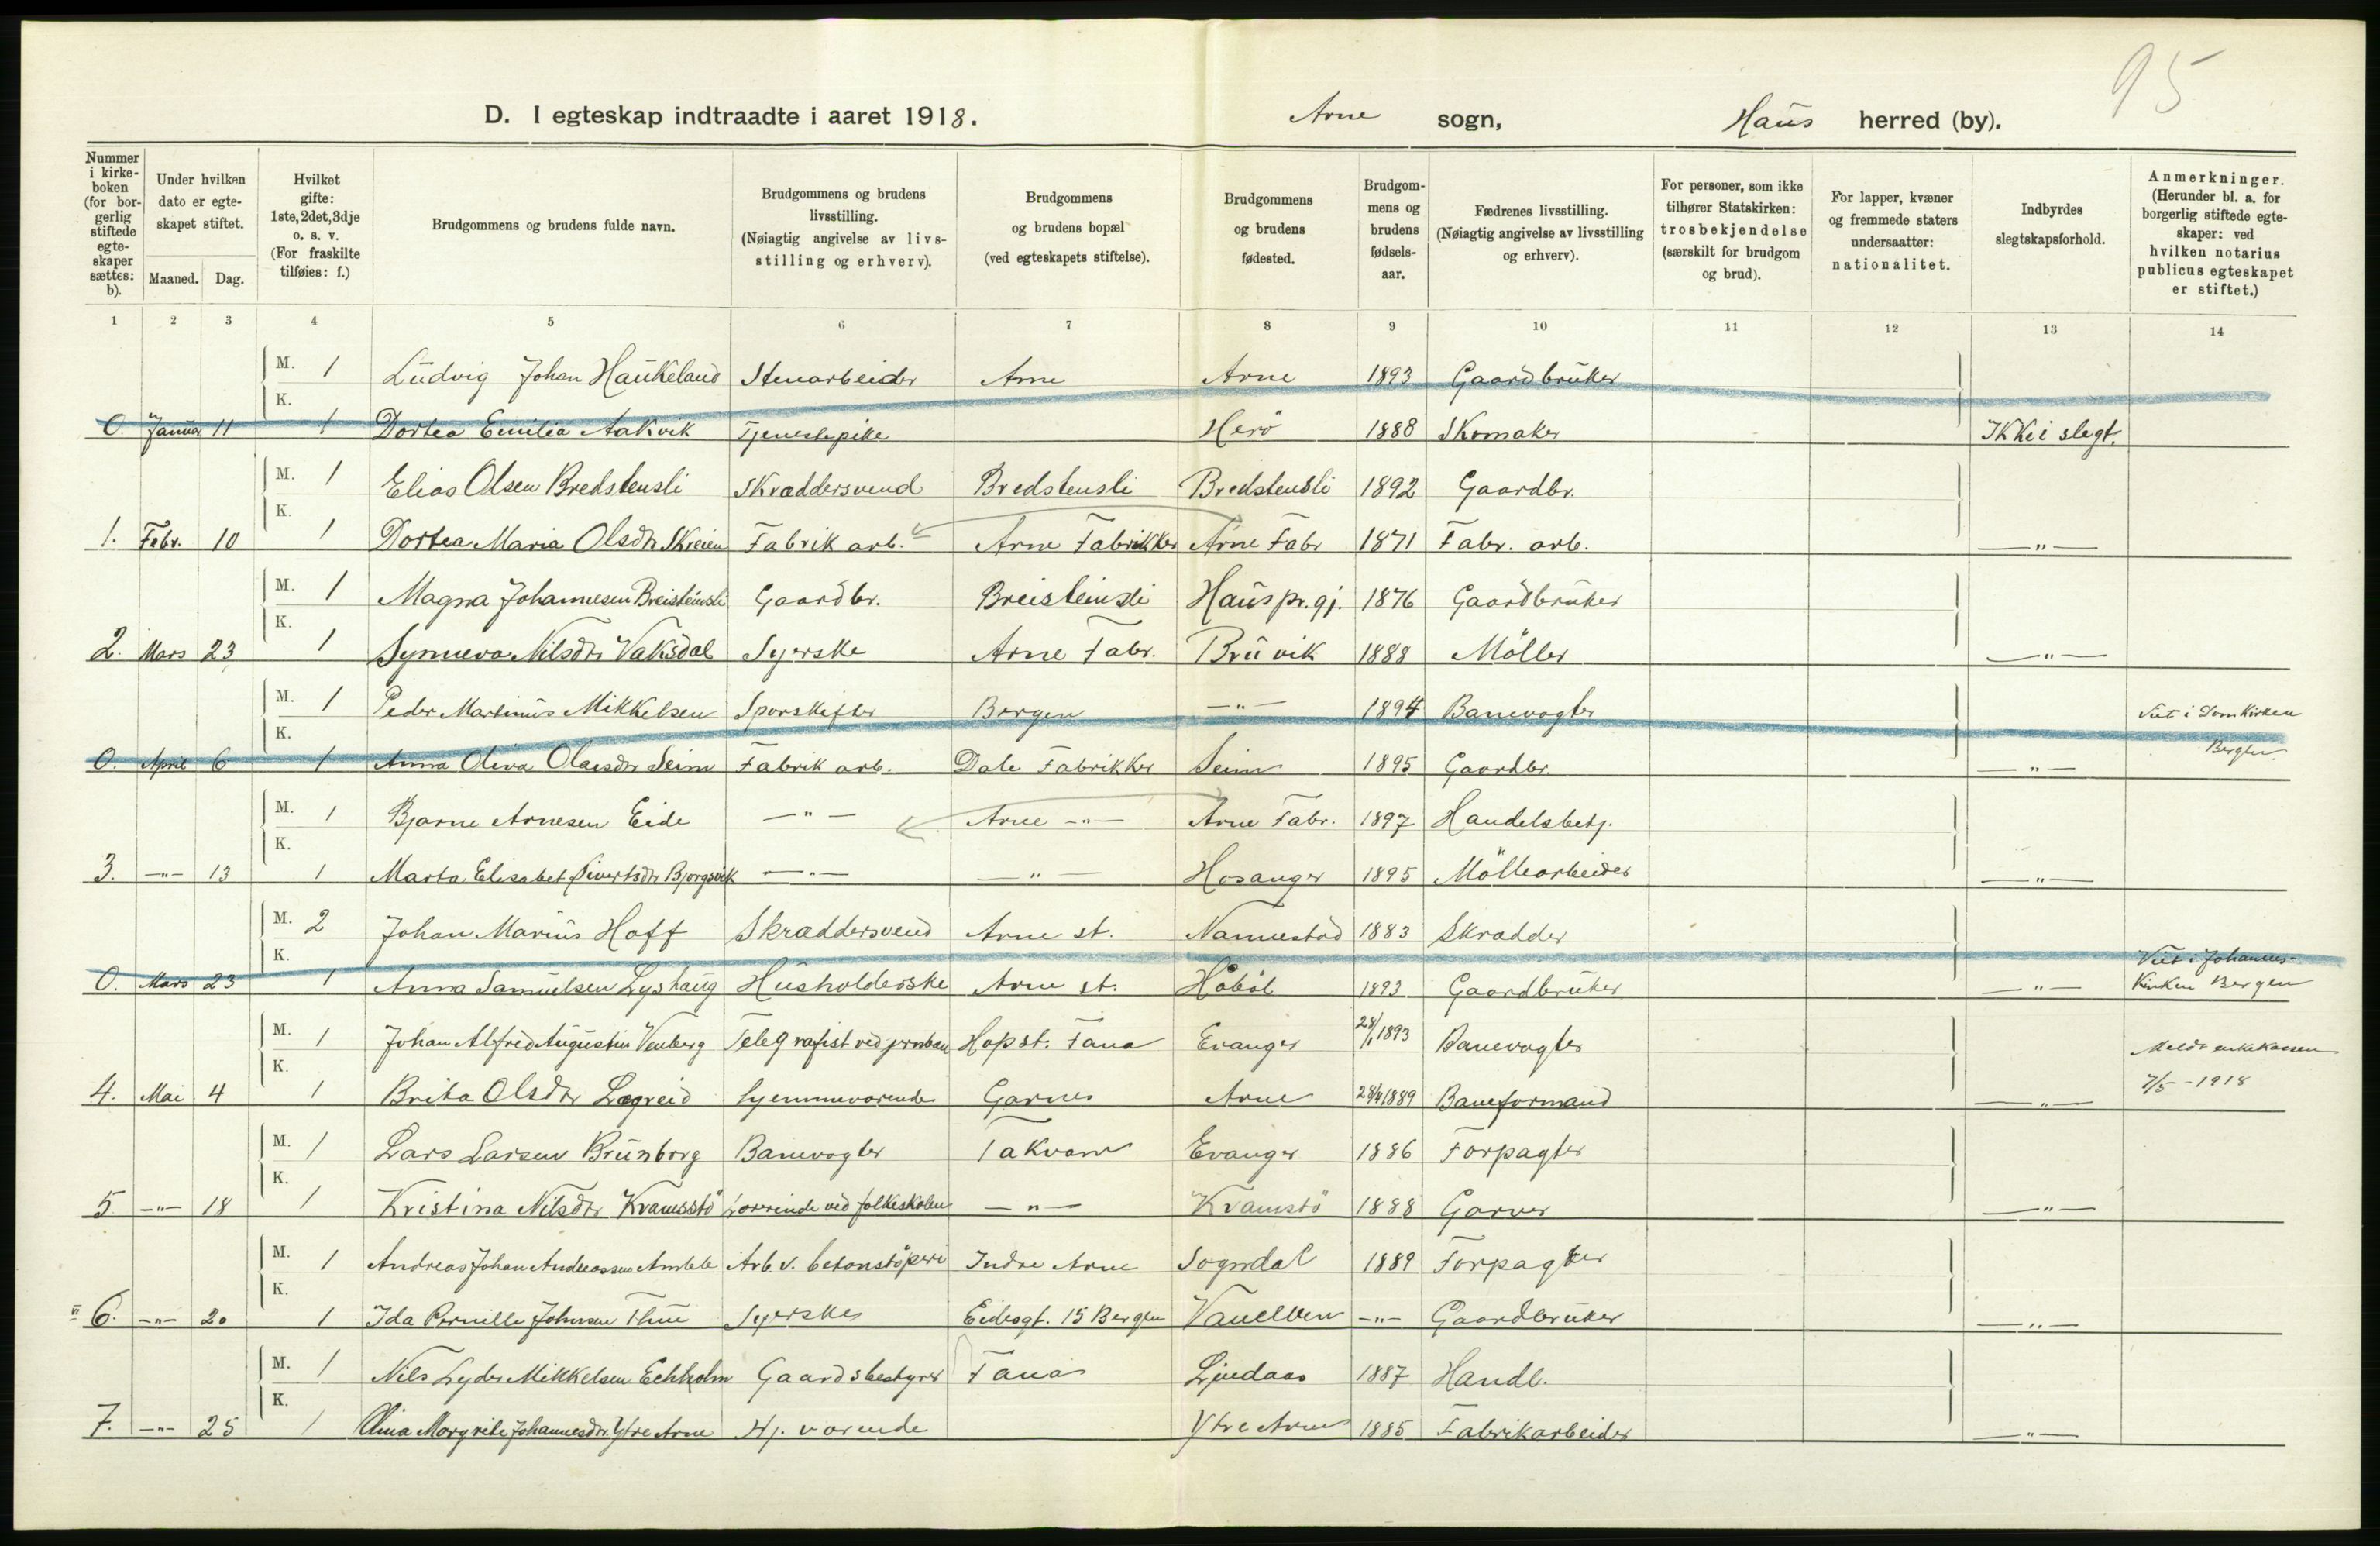 95
D. I egteskap indtraadte i aaret 1918. Arne sogn, Haus herred (by).
Nummer i kirke-boken (for bor-gerlig stiftede egte-skaper sættes: b).
Under hvilken dato er egte-skapet stiftet.
Maaned. Dag.
Hvilket gifte: 1ste, 2det, 3dje o. s. v. (For fraskilte tilføies: f.)
Brudgommens og brudens fulde navn.
Brudgommens og brudens livsstilling. (Nøiagtig angivelse av livs-stilling og erhverv).
Brudgommens og brudens bopæl (ved egteskapets stiftelse).
Brudgommens og brudens fødested.
Brudgom-mens og brudens fødsels-aar.
Fædrenes livsstilling. (Nøiagtig angivelse av livsstilling og erhverv).
For personer, som ikke tilhører Statskirken: trosbekjendelse (særskilt for brudgom og brud).
For lapper, kvæner og fremmede staters undersaatter: nationalitet.
Indbyrdes slegtskapsforhold.
Anmerkninger. (Herunder bl. a. for borgerlig stiftede egte-skaper: ved hvilken notarius publicus egteskapet er stiftet.)
1 2 3 4 5 6 7 8 9 10 11 12 13 14
M. 1 Ludvig Johan Haukeland Stenarbeider Arne Arne 1893 Gaardbruker
K.
0. Januar 11 1 Dortea Emilia Aakvik Tjenestepike Herö 1888 Skomaker Ikke i slegt.
M. 1 Elias Olsen Bredstensli Skræddersvend Bredstensli Bredstensli 1892 Gaardbr.
K.
1. Febr. 10 1 Dortea Maria Olsdtr Skreien Fabrik arb. Arne Fabrikker Arne Fabr 1871 Fabr. arb. —„—
M. 1 Magna Johannesen Breisteinsli Gaardbr. Breisteinsli Haus pr.gj. 1876 Gaardbruker
K.
2. Mars 23 1 Synneva Nilsdtr Vaksdal Syerske Arne Fabr. Bruvik 1888 Möller —„—
M. 1 Peder Martinus Mikkelsen Sporskifter Bergen —„— 1894 Banevogter Viet i Domkirken
K. Bergen.
0. April 6 1 Anna Oliva Olaisdtr Seim Fabrik arb. Dale Fabrikker Seim 1895 Gaardbr. —„—
M. 1 Bjarne Arnesen Eide —„— Arne —„— Arne Fabr. 1897 Handelsbetj.
K.
3. —„— 13 1 Marta Elisabet Sivertsdtr Bjorgsvik —„— —„— Hosanger 1895 Möllearbeider —„—
M. 2 Johan Marius Hoff Skræddersvend Arne st. Namsstad 1883 Skrædder
K. Viet i Johannes-
0. Mars 23 1 Anna Samuelsen Lyshaug Husholderske Arne st. Höböl 1893 Gaardbruker —„— Kirken Bergen
M. 1 Johan Alfred Augustin Venberg Telegrafist ved jernbane Hop st. Fana Evanger 1893 Banevogter Meldt enkekassen
K. 7/5 - 1918
4. Mai 4 1 Brita Olsdtr Lægreid hjemmeværende Garnes Arne 1889 Baneformand —„—
M. 1 Lars Larsen Brunborg Banevogter Takvam Evanger 1886 Forpagter
K.
5. —„— 18 1 Kristina Nilsdtr Kvamsstö Lærerinde ved folkeskolen —„— Kvamstö 1888 Garver —„—
M. 1 Andreas Johan Andreassen Amble Arb. v. betonstöperi Indre Arne Sogndal 1889 Forpagter
K.
6. —„— 20 1 Ida Pernille Johnsen Thue Syerske Eidesgt. 15 Bergen Vanelven —„— Gaardbruker —„—
M. 1 Nils Lyder Mikkelsen Echholm Gaardsbestyrer Fana Lindaas 1887 Handl.
K.
7. —„— 25 1 Olina Margrete Johannesdtr. Ytre Arne Hj. værende Ytre Arne 1885 Fabrikarbeider —„—